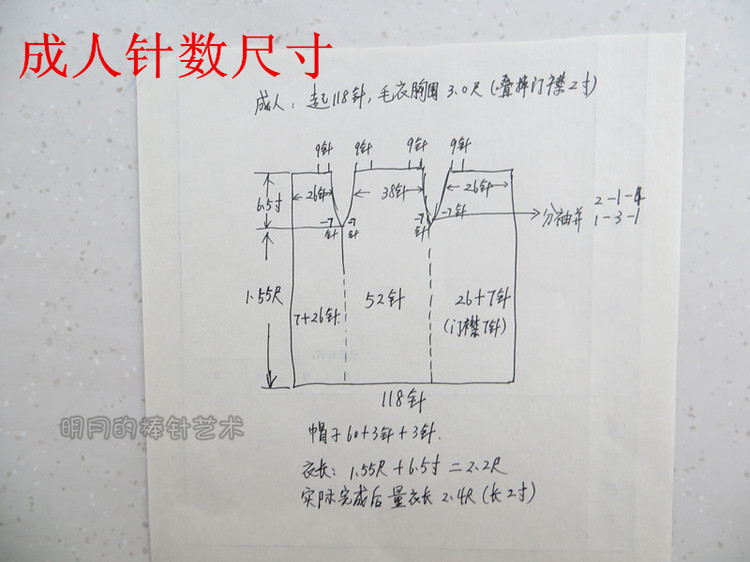 成人针数尺寸
成人：起118针，毛衣胸围3.0尺(叠掉门襟2寸)
9针 9针 9针 9针
26针 38针 26针
6.5寸
-7针 -7针 -7针 -7针
分袖并 2-1-4
1-3-1
1.55尺
7+26针 52针 26+7针
(门襟7针)
118针
明月的棒针艺术
帽子60+3针+3针.
衣长：1.55尺+6.5寸=2.2尺
实际完成后量衣长2.4尺(长2寸)